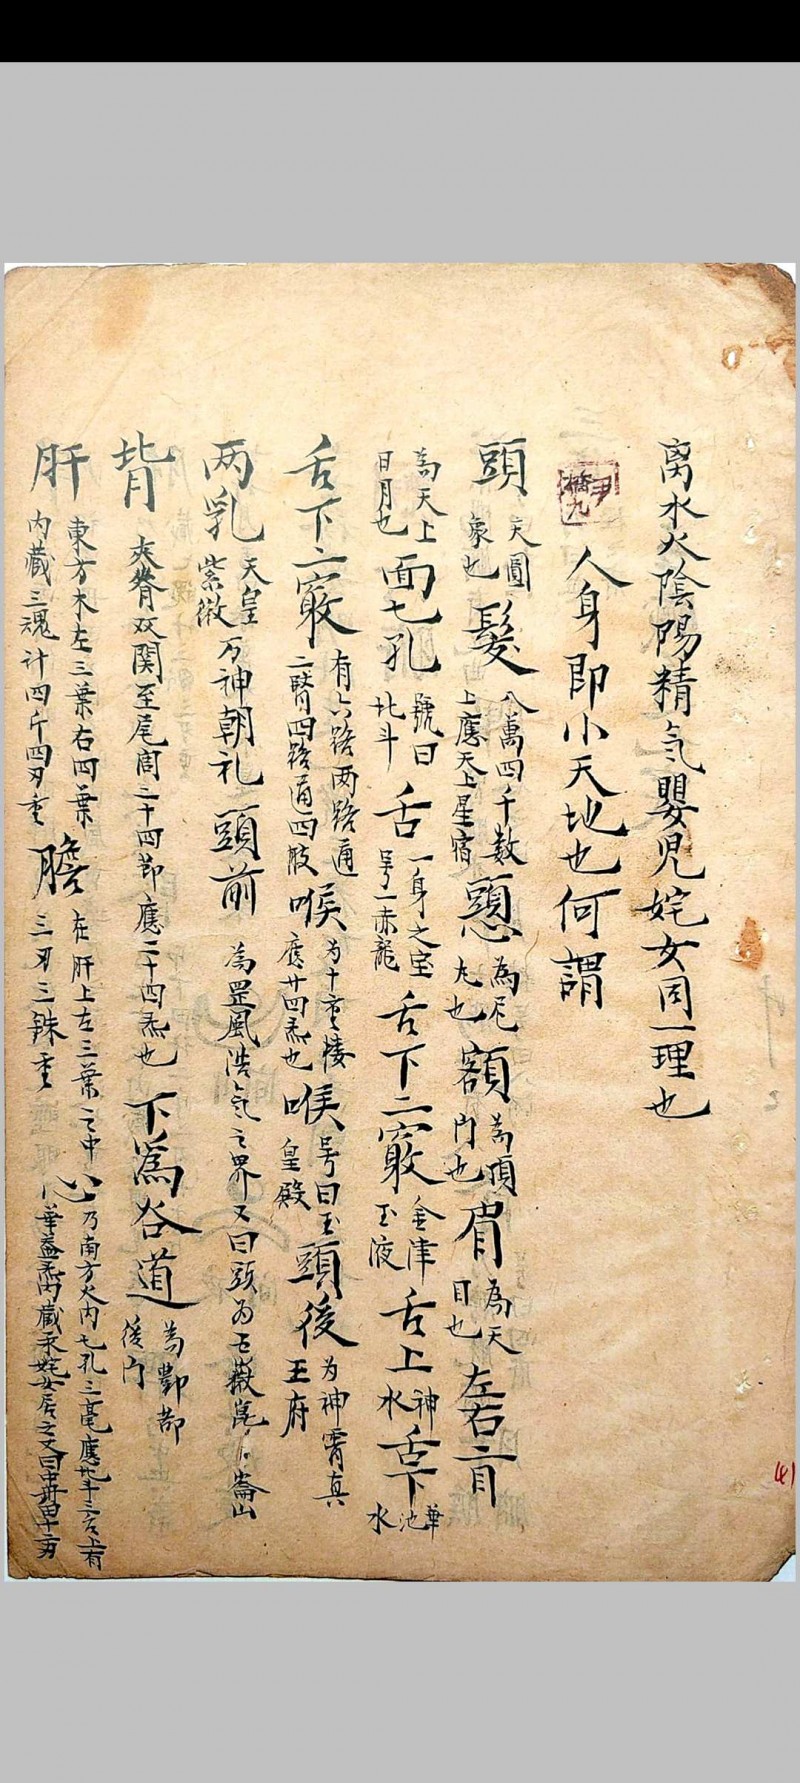 离水火陰陽精氣嬰児姹女同一理也
人身即小天地也何謂
頭 天圓象也 髮 八萬四千数上應天上星宿 顖 為尼丸也 額 為頂門也 眉 為天目也 左右二目
為天上日月也 面七孔 號曰北斗 舌 一身之宝号一赤龍 舌下二竅 金津玉液 舌上 神水 舌下 華池水
舌下二竅 有六路两路通二腎四路通四肢 喉 为十重楼應廿四炁也 喉 号曰玉皇殿 頭後 为神霄真王府
两乳 天皇紫微 万神朝礼 頭前 為罡風浩氣之界又曰頭为五嶽崑崙山
背 夾脊双関至尾閭二十四節應二十四炁也 下為谷道 為酆都後门
肝 東方木左三葉右四葉内藏三魂计四斤四刃重 膽 在肝上左三葉之中三刃三銖重 心 乃南方火内七孔三毫應北斗三台上有華蓋炁内藏汞姹女居之又曰中丹田十二刃
41